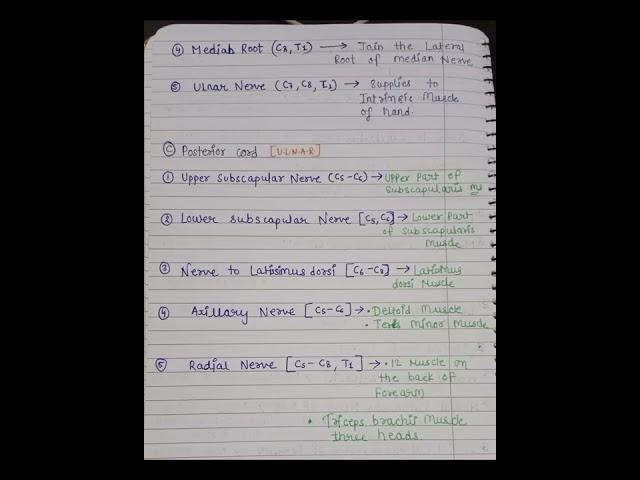 ④ Medial Root (C8, T1) → Join the Lateral
Root of median Nerve
⑤ Ulnar Nerve (C7, C8, T1) → Supplies to
Intrinsic Muscle
of hand.
Ⓒ Posterior cord [U.L.N.A.R.]
① Upper Subscapular Nerve (C5-C6) → Upper Part of
Subscapularis Ms
② Lower Subscapular Nerve [C5, C6] → Lower Part
of Subscapularis
Muscle
③ Nerve to Latisimus dorsi [C6-C8] → Latisimus
dorsi Muscle
④ Axillary Nerve [C5-C6] → • Deltoid Muscle
• Teres Minor Muscle
⑤ Radial Nerve [C5-C8, T1] → • 12 Muscle on
the back of
Forearm
• Triceps brachii Muscle
three heads.